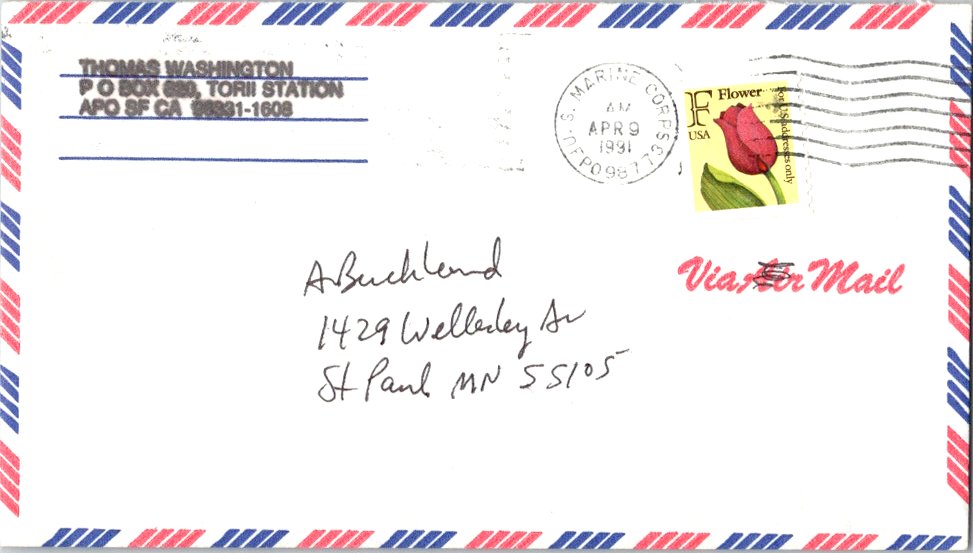 THOMAS WASHINGTON
P O BOX 620, TORII STATION
APO SF CA 96331-1608
U.S. MARINE CORPS
AM
APR 9
1991
UFPO 98773
F Flower
USA
For U.S. addresses only
Via Air Mail
A Buckland
1429 Wellesley Av
St Paul MN 55105